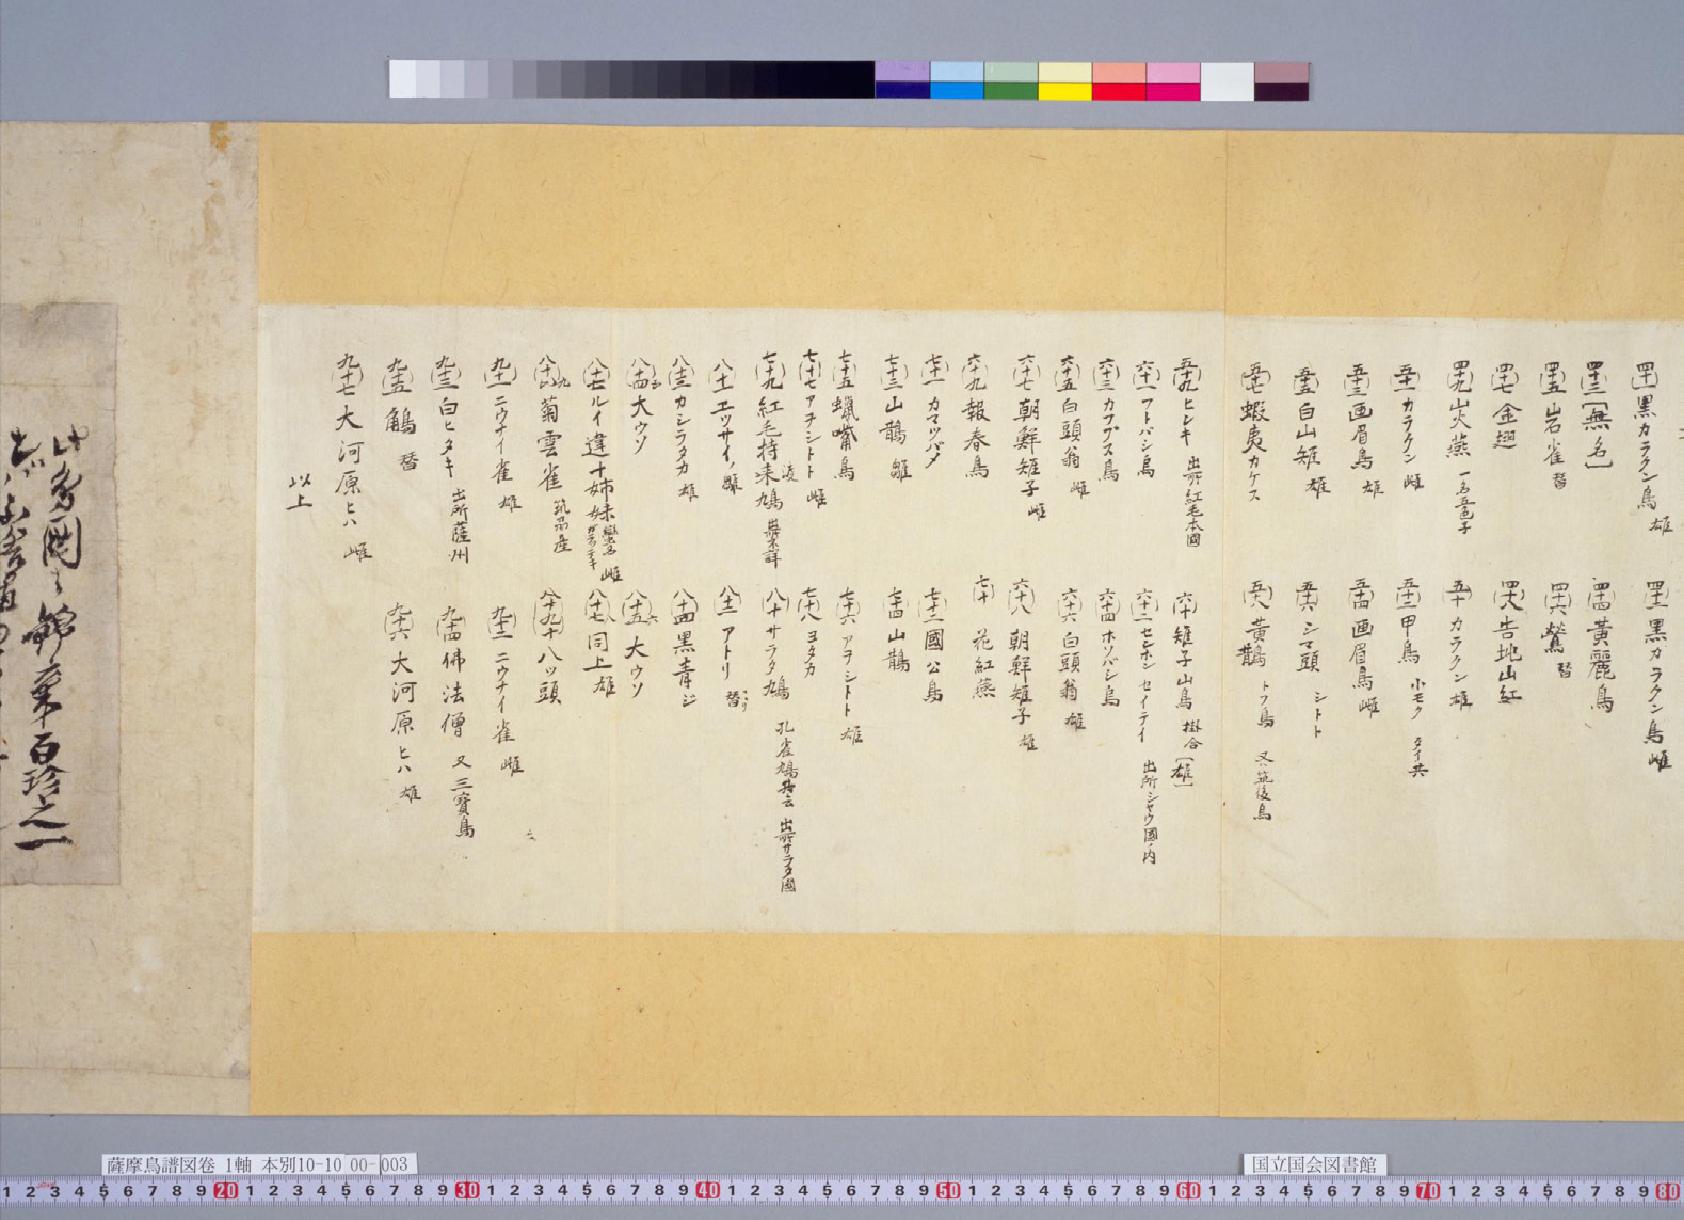 四十一 黒カラクン鳥 雄
四十二 黒カラクン鳥 雌
四十三 [無名]
四十四 黃麗鳥
四十五 岩雀 替
四十六 鶯 替
四十七 金翅
四十八 告地山紅
四十九 火燕 一名五色子
五十 カラクン 雄
五十一 カラクン 雌
五十二 甲鳥 小モク タイ共
五十三 画眉鳥 雄
五十四 画眉鳥 雌
五十五 白山雉 雄
五十六 シマ頭 シトト
五十七 蝦夷カケス
五十八 黃鵲 トフ鳥 又ハ筑後鳥
五十九 ヒレキ 出所紅毛本國
六十 雉子山鳥 掛合[雄]
六十一 フトバシ鳥
六十二 センホンセイテイ 出所シヤウ國ノ内
六十三 カフス鳥
六十四 ホソバシ鳥
六十五 白頭翁 雌
六十六 白頭翁 雄
六十七 朝鮮雉子 雌
六十八 朝鮮雉子 雄
六十九 報春鳥
七十 花紅燕
七十一 カマツバメ
七十二 國公鳥
七十三 山鵲 雌
七十四 山鵲
七十五 蠟嘴鳥
七十六 アヲシトト 雄
七十七 アヲシトト 雌
七十八 ヨタカ
七十九 紅毛持渡来鳩
八十 サラタ鳩 孔雀鳩共云 出所サラタ國
八十一 エツサイノ雌
八十二 アトリ 替
八十三 カシラタカ 雄
八十四 黒青ジ
八十四 大ウソ
八十五 大ウソ
八十七 ルイ違十姉妹 雌
八十七 同上 雄
菊雲雀
八十九 十八ツ頭
九十一 ニウナイ雀 雄
九十二 ニウナイ雀 雌
九十三 白ヒタキ 出所薩州
九十四 佛法僧 又三寶鳥
九十五 鶺 替
九十六 大河原ヒハ 雄
九十七 大河原ヒハ 雌
以上
薩摩鳥譜図巻 1軸 本別10-10 00-003
国立国会図書館